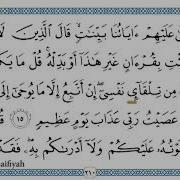 عَلَيْهِمْ ءَايَاتُنَا بَيِّنَٰتٍ قَالَ ٱلَّذِينَ لَا
بِقُرْءَانٍ غَيْرِ هَٰذَآ أَوْ بَدِّلْهُ قُلْ مَا
مِن تِلْقَآيِٕ نَفْسِىٓ إِنْ أَتَّبِعُ إِلَّا مَا يُوحَىٰٓ
عَصَيْتُ رَبِّى عَذَابَ يَوْمٍ عَظِيمٍ ١٥
عَلَيْكُمْ وَلَآ أَدْرَىٰكُم بِهِۦ
aifiyah ٢١٠